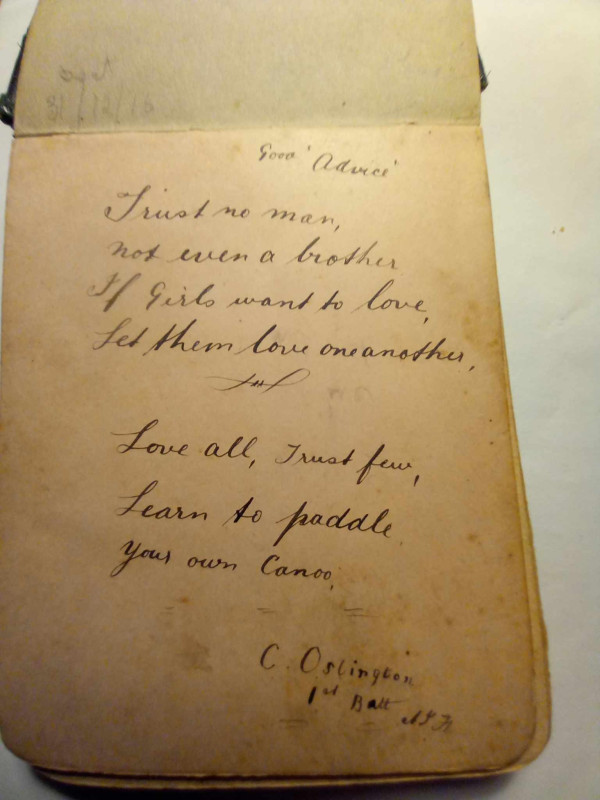 Good 'Advice'
Trust no man,
not even a brother
If Girls want to love,
Let them love one another,
Love all, Trust few,
Learn to paddle
your own Canoo,
C. Oslington
1st Batt